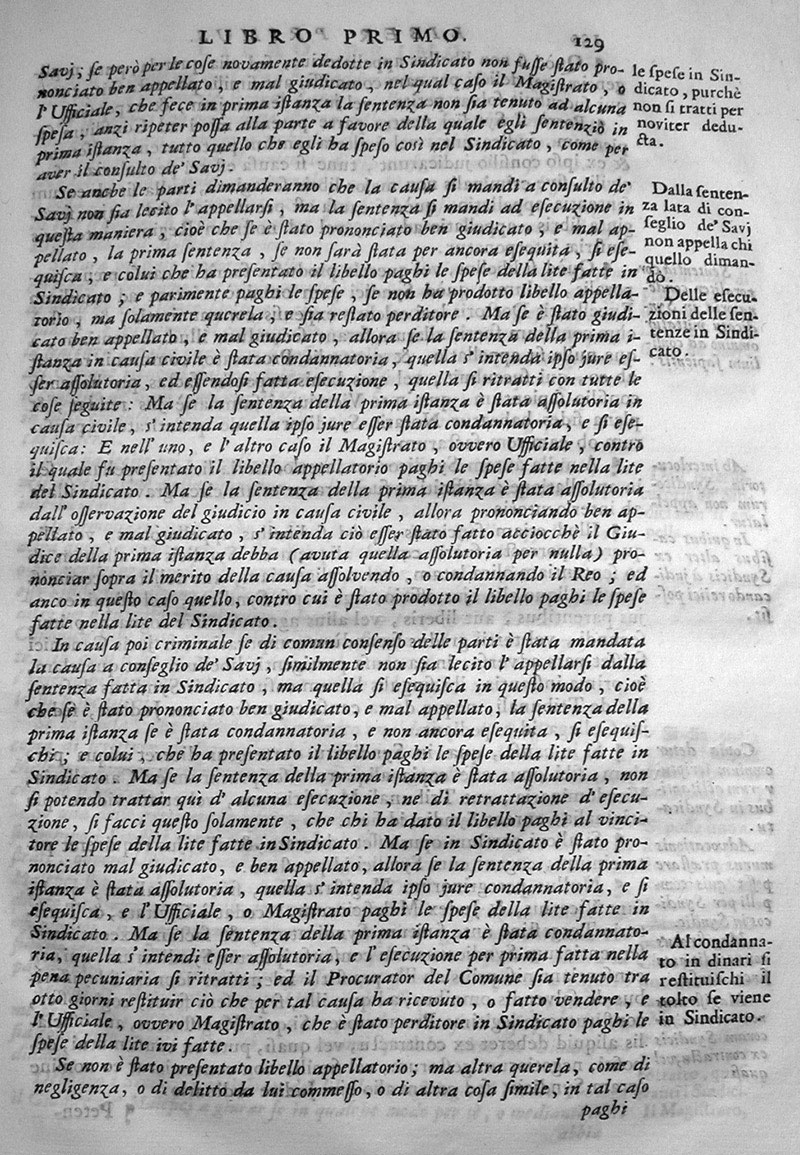 LIBRO PRIMO. 129
Savj; ſe però per le coſe novamente dedotte in Sindicato non fuſſe ſtato pro-
nonciato ben appellato, e mal giudicato, nel qual caſo il Magiſtrato, o
l'Ufficiale, che fece in prima iſtanza la ſentenza non ſia tenuto ad alcuna
ſpeſa, anzi ripeter poſſa alla parte a favore della quale egli ſentenziò in
prima iſtanza, tutto quello che egli ha ſpeſo così nel Sindicato, come per
aver il conſulto de' Savj.
le ſpeſe in Sin-
dicato, purchè
non ſi tratti per
noviter dedu-
cta.
Se anche le parti dimanderanno che la cauſa ſi mandi a conſulto de'
Savj non ſia lecito l'appellarſi, ma la ſentenza ſi mandi ad eſecuzione in
queſta maniera, cioè che ſe è ſtato prononciato ben giudicato, e mal ap-
pellato, la prima ſentenza, ſe non ſarà ſtata per ancora eſequita, ſi eſe-
quiſca, e colui che ha preſentato il libello paghi le ſpeſe della lite fatte in
Sindicato; e parimente paghi le ſpeſe, ſe non ha prodotto libello appella-
torio, ma ſolamente querela, e ſia reſtato perditore. Ma ſe è ſtato giudi-
cato ben appellato, e mal giudicato, allora ſe la ſentenza della prima i-
ſtanza in cauſa civile è ſtata condannatoria, quella s'intenda ipſo jure eſ-
ſer aſſolutoria, ed eſſendoſi fatta eſecuzione, quella ſi ritratti con tutte le
coſe ſeguite: Ma ſe la ſentenza della prima iſtanza è ſtata aſſolutoria in
cauſa civile, s'intenda quella ipſo jure eſſer ſtata condannatoria, e ſi eſe-
quiſca: E nell'uno, e l'altro caſo il Magiſtrato, ovvero Ufficiale, contro
il quale fu preſentato il libello appellatorio paghi le ſpeſe fatte nella lite
del Sindicato. Ma ſe la ſentenza della prima iſtanza è ſtata aſſolutoria
dall' oſſervazione del giudicio in cauſa civile, allora prononciando ben ap-
pellato, e mal giudicato, s'intenda ciò eſſer ſtato fatto acciocchè il Giu-
dice della prima iſtanza debba (avuta quella aſſolutoria per nulla) pro-
nonciar ſopra il merito della cauſa aſſolvendo, o condannando il Reo; ed
anco in queſto caſo quello, contro cui è ſtato prodotto il libello paghi le ſpeſe
fatte nella lite del Sindicato.
Dalla ſenten-
za lata di con-
ſeglio de' Savj
non appella chi
quello diman-
dò.
Delle eſecu-
zioni delle ſen-
tenze in Sindi-
cato.
In cauſa poi criminale ſe di comun conſenſo delle parti è ſtata mandata
la cauſa a conſeglio de' Savj, ſimilmente non ſia lecito l'appellarſi dalla
ſentenza fatta in Sindicato, ma quella ſi eſequiſca in queſto modo, cioè
che ſe è ſtato prononciato ben giudicato, e mal appellato, la ſentenza della
prima iſtanza ſe è ſtata condannatoria, e non ancora eſequita, ſi eſequiſ-
chi; e colui, che ha preſentato il libello paghi le ſpeſe della lite fatte in
Sindicato. Ma ſe la ſentenza della prima iſtanza è ſtata aſſolutoria, non
ſi potendo trattar qui d' alcuna eſecuzione, ne di retrattazione d' eſecu-
zione, ſi facci queſto ſolamente, che chi ha dato il libello paghi al vinci-
tore le ſpeſe della lite fatte in Sindicato. Ma ſe in Sindicato è ſtato pro-
nonciato mal giudicato, e ben appellato, allora ſe la ſentenza della prima
iſtanza è ſtata aſſolutoria, quella s'intenda ipſo jure condannatoria, e ſi
eſequiſca, e l'Ufficiale, o Magiſtrato paghi le ſpeſe della lite fatte in
Sindicato. Ma ſe la ſentenza della prima iſtanza è ſtata condannato-
ria, quella s'intendi eſſer aſſolutoria, e l'eſecuzione per prima fatta nella
pena pecuniaria ſi ritratti; ed il Procurator del Comune ſia tenuto tra
otto giorni reſtituir ciò che per tal cauſa ha ricevuto, o fatto vendere, e
l'Ufficiale, ovvero Magiſtrato, che è ſtato perditore in Sindicato paghi le
ſpeſe della lite ivi fatte.
Al condanna-
to in dinari ſi
reſtituiſchi il
tolto ſe viene
in Sindicato.
Se non è ſtato preſentato libello appellatorio; ma altra querela, come di
negligenza, o di delitto da lui commeſſo, o di altra coſa ſimile, in tal caſo
paghi